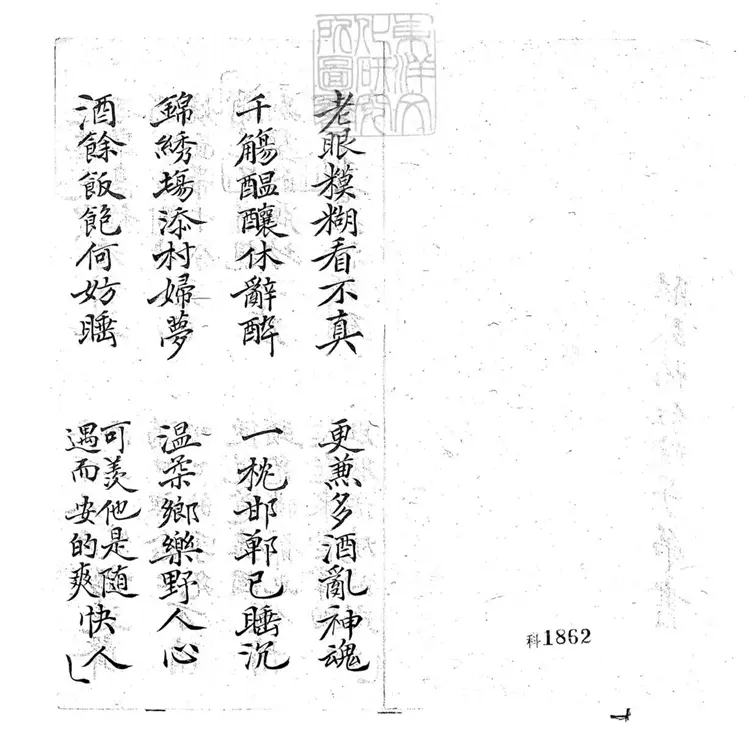 東洋文
化研究
所圖書
科1862
老眼糢糊看不真　更兼多酒亂神魂
千觴醖釀休辭酔　一枕邯鄲已睡沉
錦綉塲添村婦夢　温柔鄉樂野人心
酒餘飯飽何妨睡　可羨他是随
遇而安的爽快人